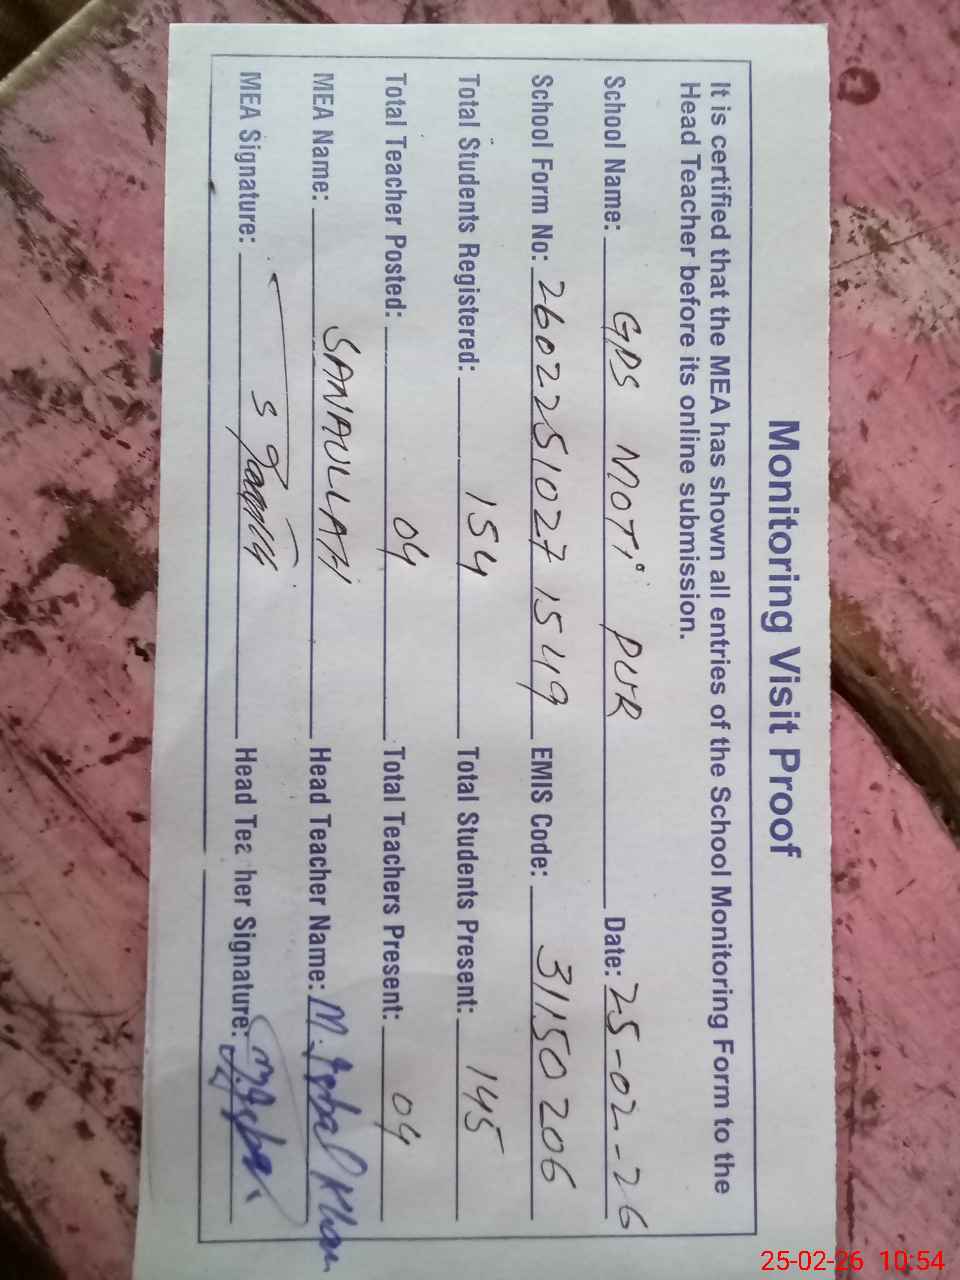 Monitoring Visit Proof
It is certified that the MEA has shown all entries of the School Monitoring Form to the
Head Teacher before its online submission.
School Name: GPS MOTI PUR Date: 25-02-26
School Form No: 2602251027 1549 EMIS Code: 31150206
Total Students Registered: 154 Total Students Present: 145
Total Teacher Posted: 04 Total Teachers Present: 04
MEA Name: SANAULLAH Head Teacher Name: M. Iqbal Khan
MEA Signature: Head Teacher Signature:
25-02-26 10:54